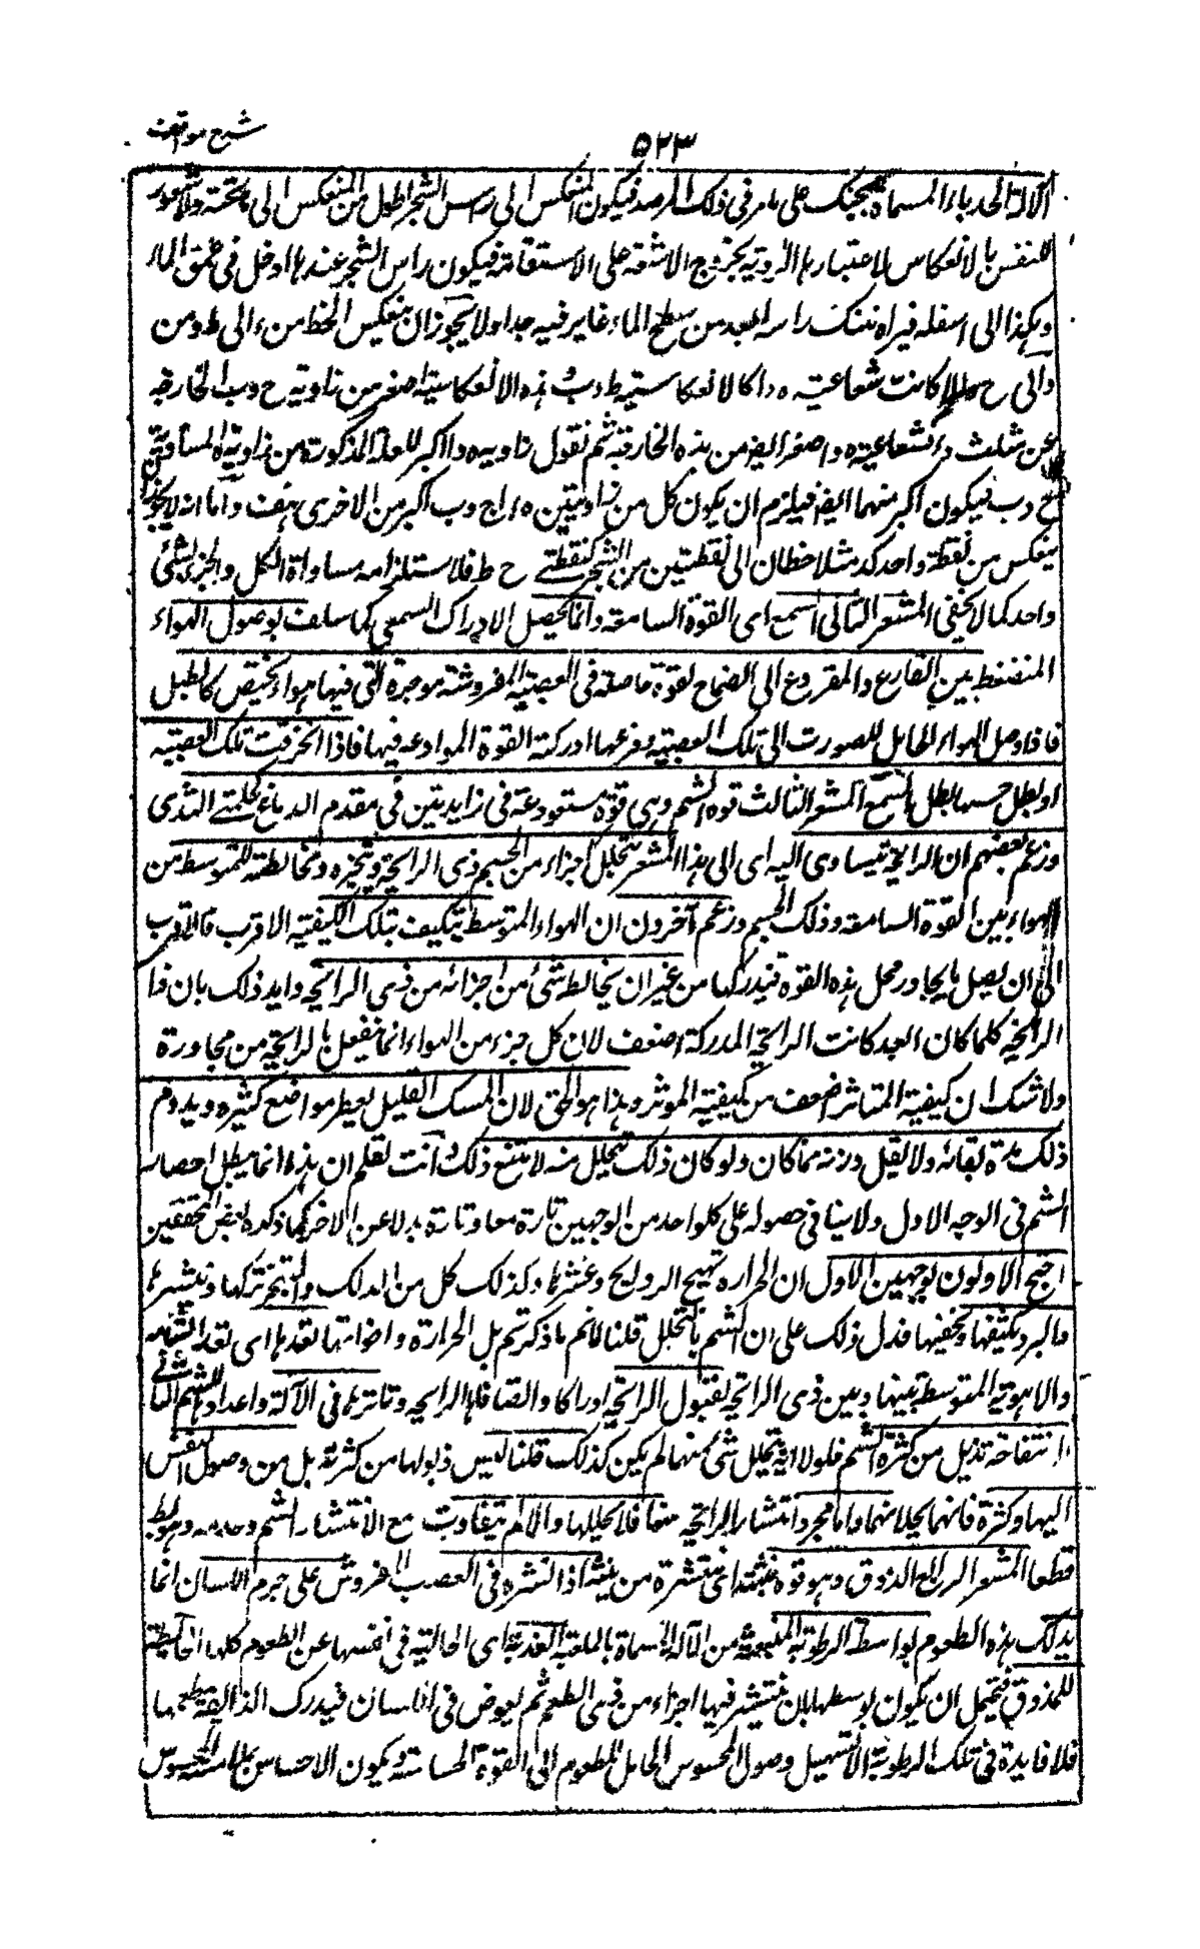 شرح مواقف
۵۲۳
الآلة الحدباء المسماة بجنك على مامر فى ذلك المرصد فيكون المنعكس الى راس الشجر اطول من المنعكس الى ما تحته ولا شعور
للنفس بالانعكاس لاعتبارها الروية بخروج الاشعة على الاستقامة فيكون راس الشجر عندها ادخل فى عمق الماء
وهكذا الى اسفله فيراه متنكسا راسه ابعد من سطح الماء غايرا فيه جدا ولا يجوز ان ينعكس الخط من ء الى ط ومن
والى ح والا كانت شعاعية ه د ا كالانعكاسية ط د ب وهذه الانعكاسية اصغر من زاوية ح د ب الخارجة
عن مثلث د ء الشعاعية ه د اصغر ايضا من هذه الخارجة ثم نقول زاوية ه د ا اكبر المذكورة من زاوية ه ا المساوية
ح د ب فيكون اكبر منهما ايضا فيلزم ان يكون كل من زاويتين ه ء ا ح د ب اكبر من الاخرى هف واما انه لا يجوز ان
ينعكس من نقطة واحدة كد مثلا خطان الى نقطتين من الشجر كنقطتى ح ط فلاستلزامه مساواة الكل والجزء لشئ
واحد كما لا يخفى المشعر الثانى السمع اى القوة السامعة وانما يحصل الادراك السمعى كما سلف بوصول الهواء
المنضغط بين القارع والمقروع الى الصماخ لقوة حاصلة فى العصبة المفروشة فى مؤخره التى فيها هواء محتقن كالطبل
فاذا وصل الهواء الحامل للصوت الى تلك العصبة وقرعها ادركته القوة المودعة فيها فاذا انخرقت تلك العصبة
او بطل حسها بطل السمع المشعر الثالث قوة الشم وهى قوة مستودعة فى زايدتين فى مقدم الدماغ كحلمتى الثدى
وزعم بعضهم ان الرايحة تتأدى اليه اى الى هذا المشعر بتحلل اجزاء من الجسم ذى الرايحة وتبخره ومخالطته للمتوسط من
الهواء بين القوة السامعة وذلك الجسم وزعم آخرون ان الهواء المتوسط يتكيف بتلك الكيفية الاقرب فالاقرب
الى ان يصل ما يجاور محل هذه القوة فتدركها من غير ان يخالط شئ من اجزائه من ذى الرايحة وايد ذلك بان ذا
الرايحة كلما كان ابعد كانت الرايحة المدركة اضعف لان كل جزء من الهواء انما ينفعل بالرايحة من مجاوره
ولا شك ان كيفية المتاثر اضعف من كيفية الموثر وهذا هو الحق لان المسك القليل يعطر مواضع كثيرة ويدوم
ذلك مدة بقائه ولا يقل وزنه مما كان ولو كان ذلك بتحلل منه لامتنع ذلك وانت تعلم ان هذا انما يبطل انحصار
الشم فى الوجه الاول ولا ينافى حصوله على كل واحد من الوجهين تارة معا وتارة بدلا عن الاخر كما ذكره بعض المحققين
احتج الاولون بوجهين الاول ان الحرارة تهيج الروايح وكذلك كل من الدلك والتبخير يذكيها وينشرها
والبرد يكثفها ويخفيها فدل ذلك على ان الشم بالتحلل قلنا لا نم ما ذكرتم بل الحرارة واخواتها تعدها اى تعد الشامة
والاهوية المتوسطة بينها وبين ذى الرائحة لقبول الرائحة ادراكا واتصافا الثانى
ان التفاحة تذبل من كثرة الشم فلولا انه يتحلل شئ منها لم يكن كذلك قلنا ليس ذبولها من كثرته بل من وصول النفس
اليها وكثرة فانهما يحللانها واما مجرد انتشار الرايحة منها فلا يحللها والا لم يتفاوت مع الانتشار الشم وعدمه وهو بط
قطعا المشعر الرابع الذوق وهو قوة منبثة اى منتشرة من بثه اذا نشره فى العصب المفروش على جرم اللسان انما
يدرك هذه الطعوم بواسطة الرطوبة المنبعثة من الآلة المسماة بالملعبة العذبة اى الخالية فى نفسها عن الطعوم كلها المخالطة
للمذوق فيحتمل ان يكون توسطها بان ينتشر فيها اجزاء من ذى الطعم ثم يغوص فى اللسان فيدرك الذائقة طعمها
فلا فايدة فى تلك الرطوبة الا تسهيل وصول المحسوس الحامل للطعوم الى القوة الحاسة ويكون الاحساس بملامسة المحسوس